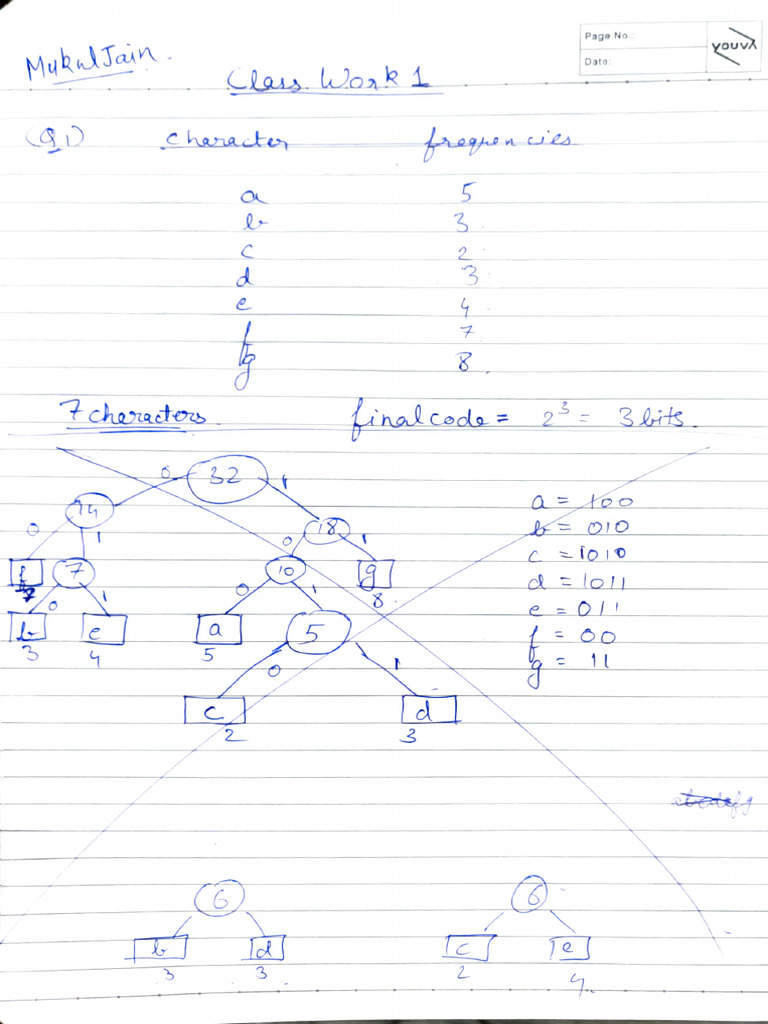 Page No.:
Date:
youva
Mukul Jain.
Class Work 1
(Q1) character frequencies
a 5
b 3
c 2
d 3
e 4
f 7
g 8
7 characters final code = 2³ = 3 bits.
0 32 1
14
0 1 0 18 1
f 7 10 g
7 0 1 0 1 8
b e a 5
3 4 5 0 1
c d
2 3
a = 100
b = 010
c = 1010
d = 1011
e = 011
f = 00
g = 11
abcdefg
6 6
b d c e
3 3 2 4